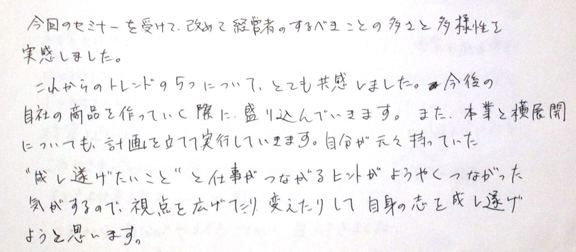 今回のセミナーを受けて、改めて経営者のするべきことの多さと多様性を
実感しました。
これからのトレンドの5つについて、とても共感しました。今後の
自社の商品を作っていく際に、盛り込んでいきます。また、本業と横展開
についても、計画を立てて実行していきます。自分が元々持っていた
"成し遂げたいこと"と仕事がつながるヒントがようやくつながった
気がするので、視点を広げてたり変えたりして自身の志を成し遂げ
ようと思います。